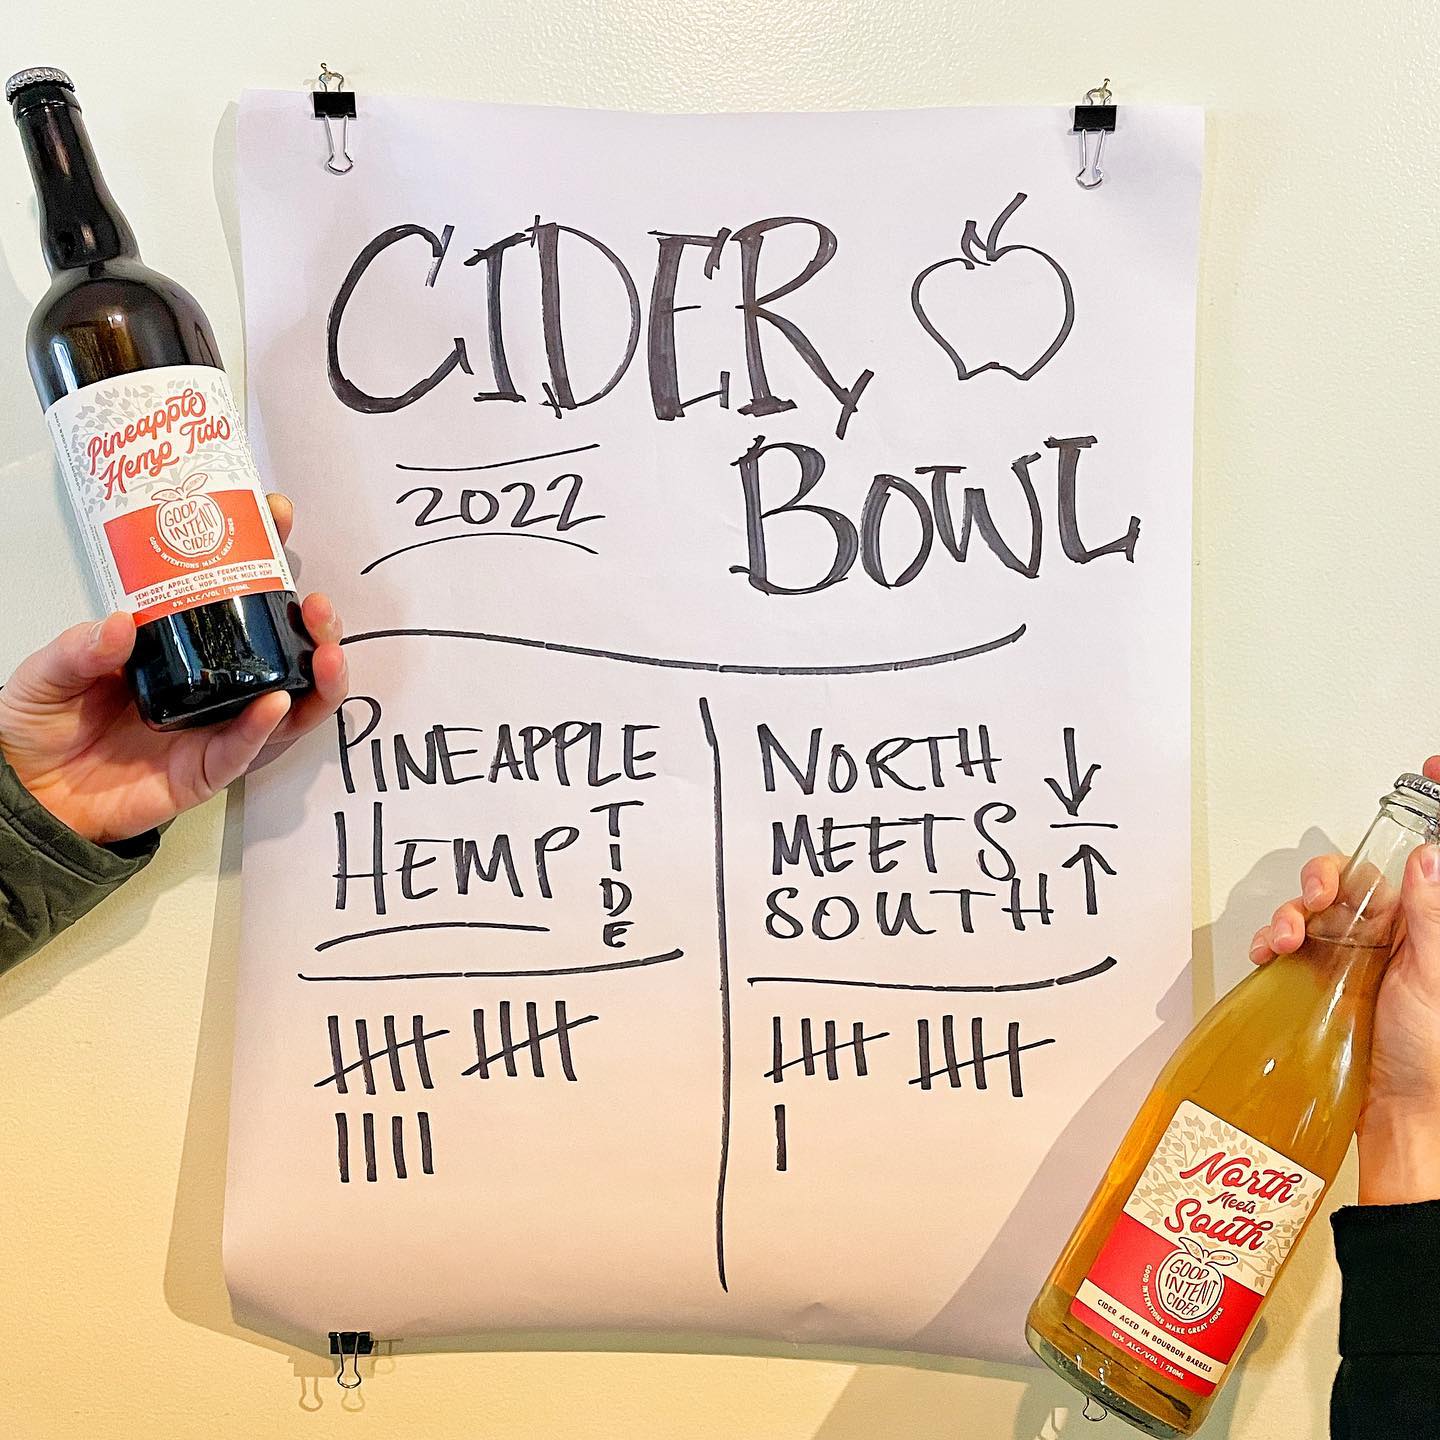 CIDER
BOWL
2022
PINEAPPLE
HEMP
TIDE
NORTH
MEETS
SOUTH
Pineapple
Hemp Tide
GOOD
INTENT
CIDER
GOOD INTENTIONS MAKE GREAT CIDER
SEMI-DRY APPLE CIDER FERMENTED WITH
PINEAPPLE JUICE, HOPS, PINK MULE HEMP
8% ALC/VOL | 750ML
North
Meets
South
GOOD
INTENT
CIDER
GOOD INTENTIONS MAKE GREAT CIDER
CIDER AGED IN BOURBON BARRELS
10% ALC/VOL | 750ML